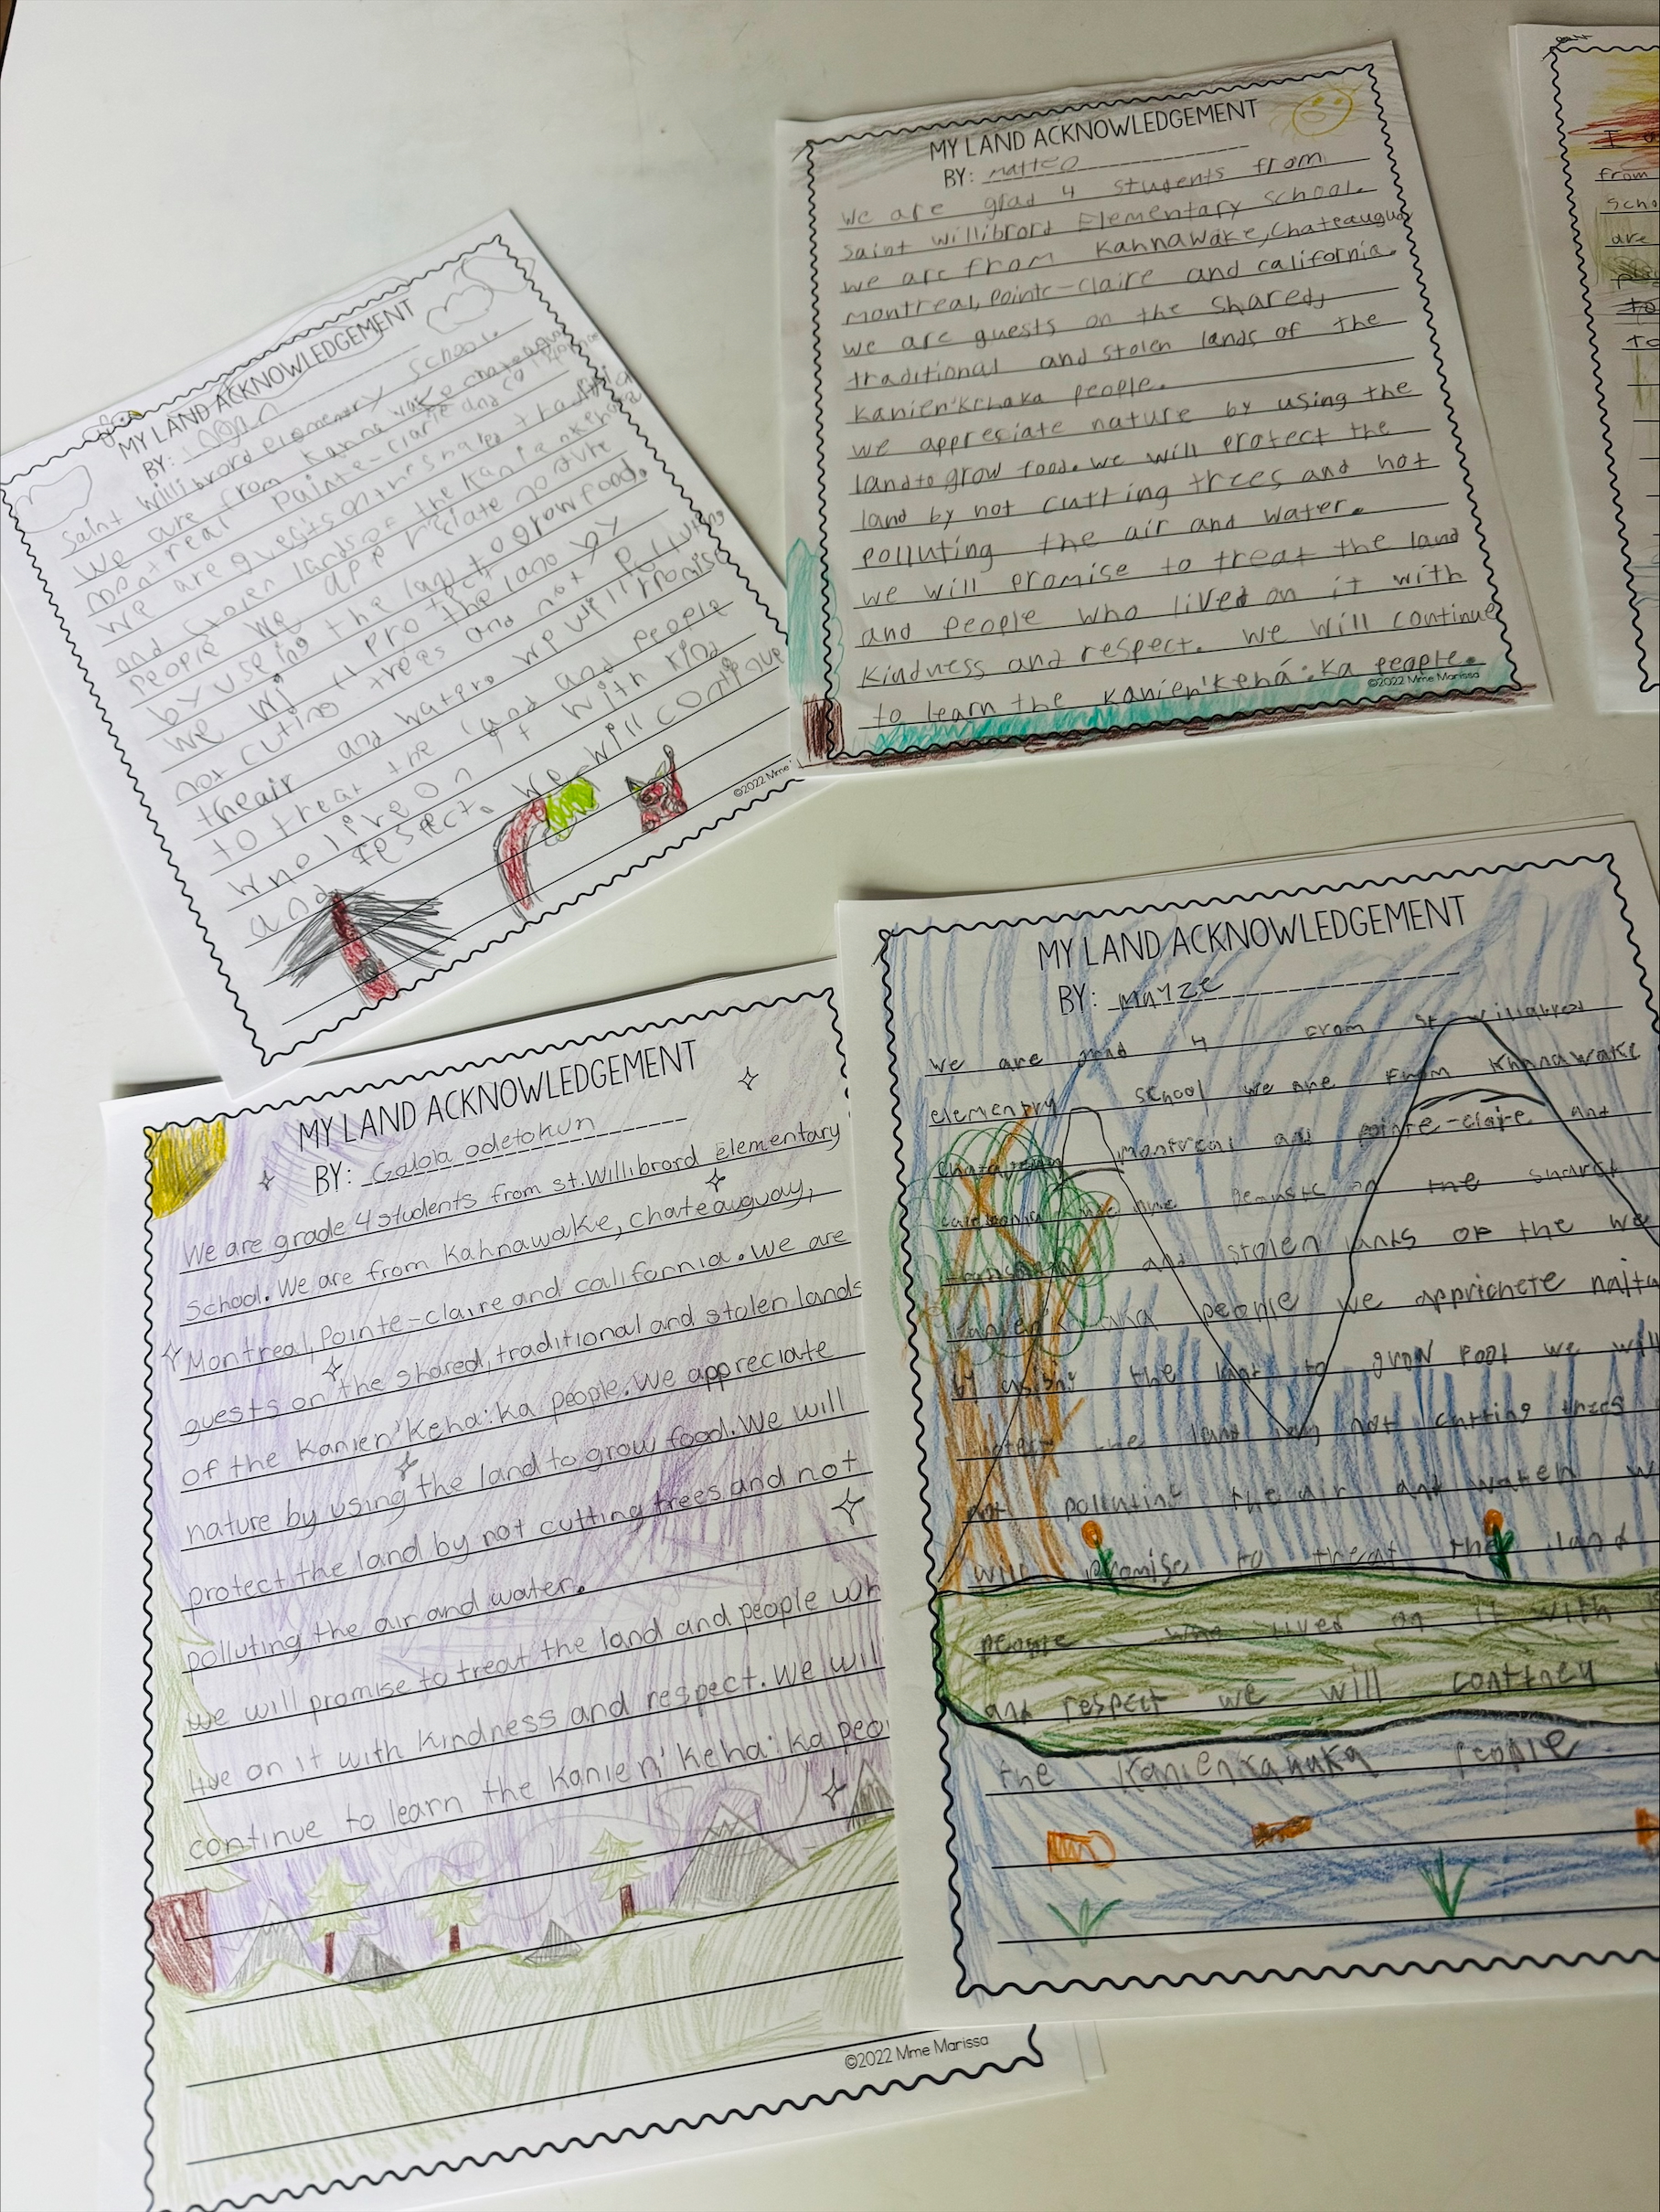 MY LAND ACKNOWLEDGEMENT
BY: Logan
Saint Willibrord elementry School.
We are from
montreal pointe-claire and
We are
and stolen lands of the
people We app riciate
by useing the land to grow food.
We will pro tect the land by
not cuting trees and not
theair and water. we will promise
to treat the land and people
who live on it with kind
and respect. We will continue
©2022 Mme
MY LAND ACKNOWLEDGEMENT
BY: Matteo
We are grad 4 students from
Saint Willibrord Elementary School.
we are from Kahnawake, Chateauguay
montreal, Pointe-Claire and california.
we are guests on the shared,
traditional and stolen lands of the
Kanien'Kehaka people.
we appreciate nature by using the
land to grow food. we will protect the
land by not cutting trees and not
polluting the air and water.
we will promise to treat the land
and people who lived on it with
kindness and respect. we will continue
to learn the Kanien'kehá:ka people.
©2022 Mme Marissa
from
are
MY LAND ACKNOWLEDGEMENT
BY: Galola odetokun
We are grade 4 students from st. Willibrord Elementary
School. We are from Kahnawake, chateauguay,
Montreal, Pointe-claire and california. We are
guests on the shared, traditional and stolen lands
of the Kanien'Keha:ka people. We appreciate
nature by using the land to grow food. We will
protect the land by not cutting trees and not
polluting the air and water.
we will promise to treat the land and people wh
live on it with kindness and respect. We will
continue to learn the Kanien'Keha:ka peo
©2022 Mme Marissa
MY LAND ACKNOWLEDGEMENT
BY: Mayze
We are grad 4 From St willabrod
elementry school we are From Khanawake
montreal and pointe-claire and
the share
and stolen lands OF the
people we apprichete
the land to grow food we will
the land not cutting trees
not polluting the air and water
will promise to threat the land
people who lived on it with
and respect we will contney
the Kanienkahaka people